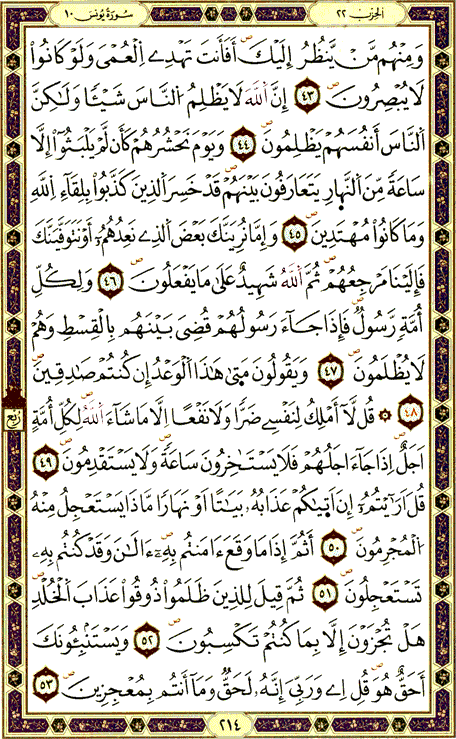 الحزب ٢٢
سورة يونس ١٠
وَمِنْهُم مَّنْ يَّنظُرُ إِلَيْكَ أَفَأَنتَ تَهْدِے اِلْعُمْىَ وَلَوْ كَانُواْ
لَا يُبْصِرُونَ ٤٣ إِنَّ اَللَّهَ لَا يَظْلِمُ اُلنَّاسَ شَيْـًٔا وَلَٰكِنَّ
اَلنَّاسَ أَنفُسَهُمْ يَظْلِمُونَ ٤٤ وَيَوْمَ نَحْشُرُهُمْ كَأَن لَّمْ يَلْبَثُوٓاْ إِلَّا
سَاعَةً مِّنَ اَلنَّهارِ يَتَعَارَفُونَ بَيْنَهُمْ قَدْ خَسِرَ اَلذِينَ كَذَّبُواْ بِلِقَآءِ اِللَّهِ
وَمَا كَانُواْ مُهْتَدِينَ ٤٥ وَإِمَّا نُرِيَنَّكَ بَعْضَ اَلذِے نَعِدُهُمُۥٓ أَوْ نَتَوَفَّيَنَّكَ
فَإِلَيْنَا مَرْجِعُهُمْ ثُمَّ اَللَّهُ شَهِيدٌ عَلَىٰ مَا يَفْعَلُونَ ٤٦ وَلِكُلِّ
أُمَّةٍ رَّسُولٌ فَإِذَا جَآءَ رَسُولُهُمْ قُضِىَ بَيْنَهُم بِالْقِسْطِ وَهُمْ
لَا يُظْلَمُونَ ٤٧ وَيَقُولُونَ مَتَىٰ هَٰذَا اَلْوَعْدُ إِن كُنتُمْ صَٰدِقِينَ
٤٨ ۞ قُل لَّآ أَمْلِكُ لِنَفْسِے ضَرًّا وَلَا نَفْعًا اِلَّا مَا شَآءَ اَللَّهُ لِكُلِّ أُمَّةٍ
اَجَلٌ اِذَا جَآءَ اجَلُهُمْ فَلَا يَسْتَـٰٔخِرُونَ سَاعَةً وَلَا يَسْتَقْدِمُونَ ٤٩
قُلَ اَرَٰٓيْتُمُۥٓ إِنَ اَتٰىكُمْ عَذَابُهُۥ بَيَٰتًا اَوْ نَهَارًا مَّاذَا يَسْتَعْجِلُ مِنْهُ
اُلْمُجْرِمُونَ ٥٠ أَثُمَّ إِذَا مَا وَقَعَ ءَامَنتُم بِهِۦٓ ءَآلَٰنَ وَقَدْ كُنتُم بِهِۦ
تَسْتَعْجِلُونَ ٥١ ثُمَّ قِيلَ لِلذِينَ ظَلَمُواْ ذُوقُواْ عَذَابَ اَلْخُلْدِ
هَلْ تُجْزَوْنَ إِلَّا بِمَا كُنتُمْ تَكْسِبُونَ ٥٢ وَيَسْتَنۢبِـُٔونَكَ
أَحَقٌّ هُوَ قُلِ اِے وَرَبِّىَ إِنَّهُۥ لَحَقٌّ وَمَآ أَنتُم بِمُعْجِزِينَ ٥٣
ربع
٢١٤